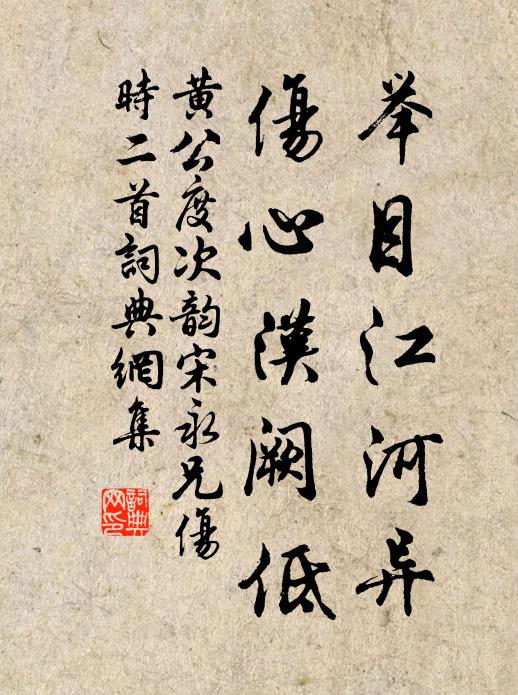 举目江河异
傷心漢阙低
黄公度次韵宋永兄傷
時二首詞典網集
詞典网印